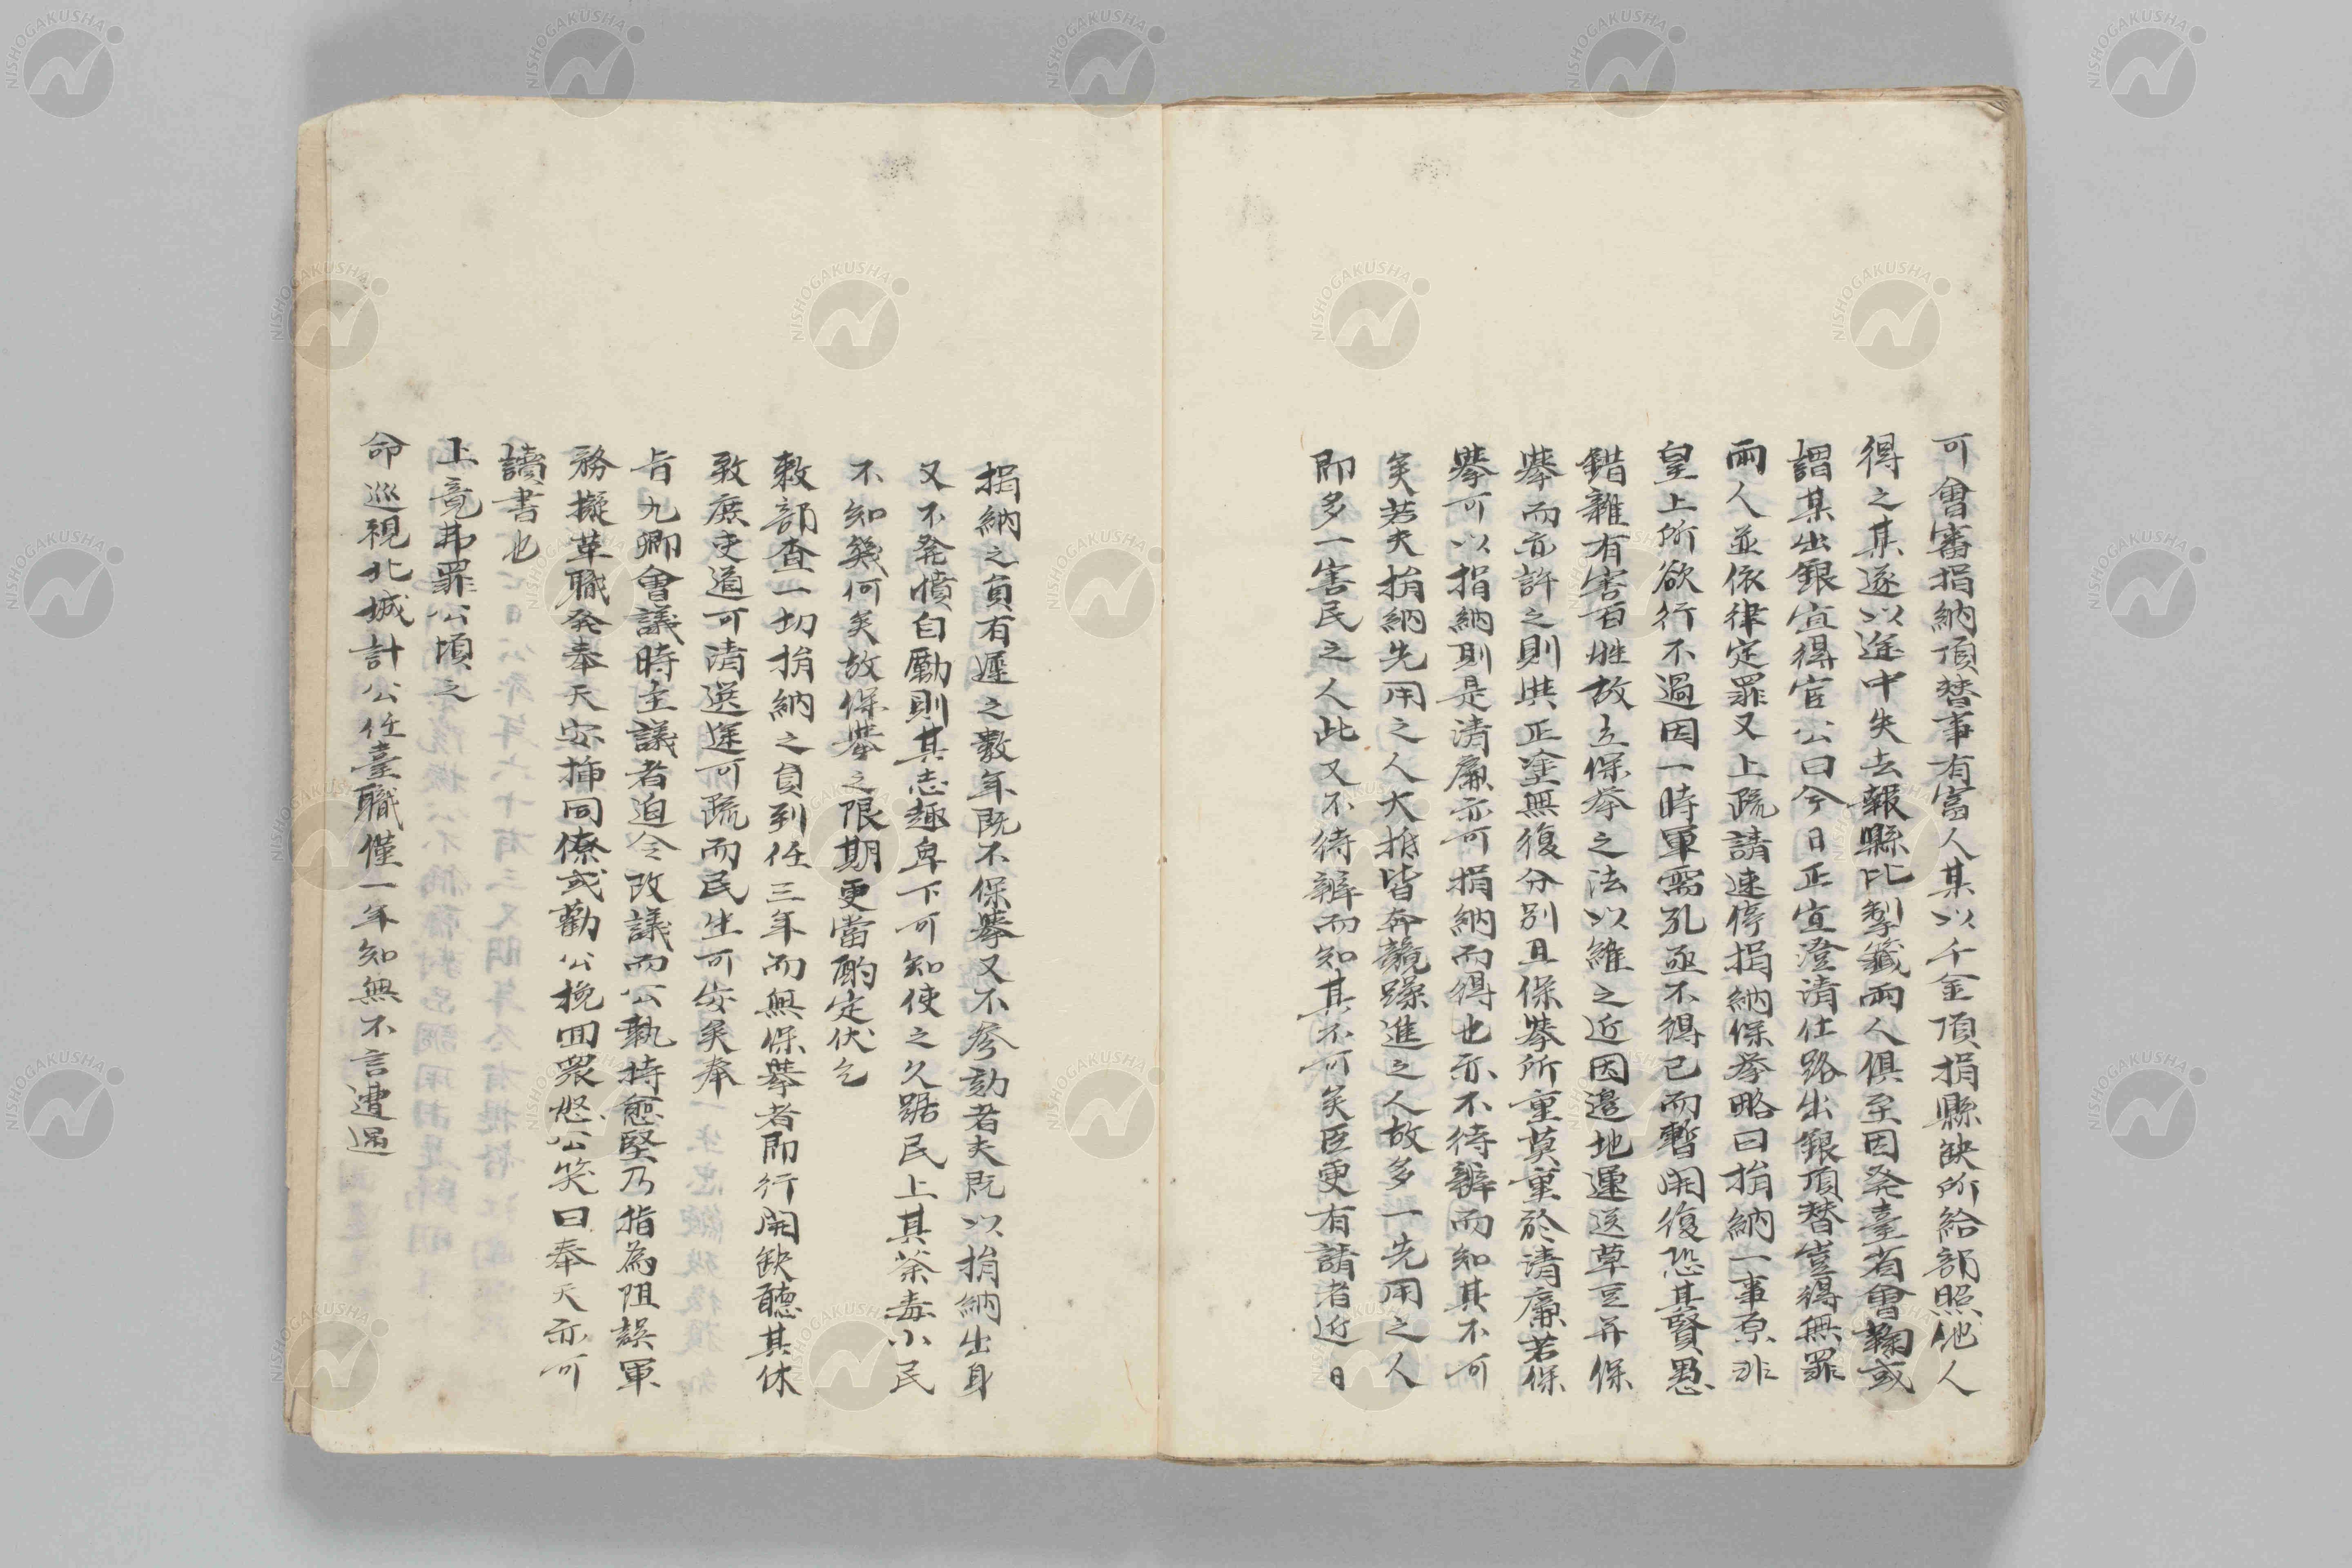 可會審捐納頂替事有富人某以千金頂捐縣缺所給部照他人
得之其遂以途中失去報縣比掣籤兩人俱至因癹臺省會鞫或
謂某出銀宜得官公曰今日正宜澄清仕路出銀頂替豈得無罪
兩人並依律定罪又上疏請速停捐納保挙略曰捐納一事原非
皇上所欲行不過因一時軍需孔亟不得已而暫開復恐其賢愚
錯雜有害百姓故立保挙之法以維之近因邉地運送草豆并保
擧而亦許之則與正塗無復分別且保擧所重莫重於清廉若保
擧可以捐納則是清廉亦可捐納而得也亦不待辦而知其不可
矣若夫捐納先用之人大抵皆奔競躁進之人故多一先用之人
即多一害民之人此又不待辦而知其不可矣臣更有請者近日
捐納之員有遲之數年既不保擧又不參劾者夫既以捐納出身
又不発憤自勵則其志趣卑下可知使之久踞民上其荼毒小民
不知幾何矣故保擧之限期更當酌定伏乞
敕部查一切捐納之員到任三年而無保擧者即行開缺聽其休
致庶吏道可清選途可疏而民生可安矣奉
旨九卿會議時主議者迫令改議而公執持愈堅乃指為阻誤軍
務擬革職発奉天安揷同僚或勸公挽囬衆怒公笑曰奉天亦可
讀書也
上竟弗罪公頃之
命巡視北城計公任臺職僅一年知無不言遭遇